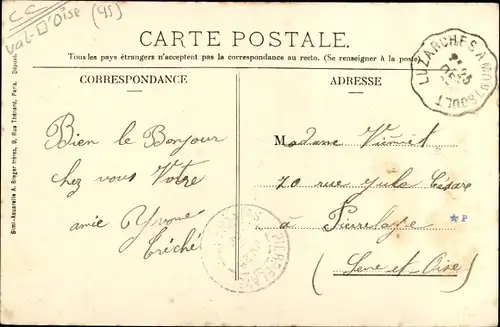 CC
Val-D'Oise (95)
CARTE POSTALE.
Tous les pays étrangers n'acceptent pas la correspondance au recto. (Se renseigner à la poste)
CORRESPONDANCE
ADRESSE
LUZARCHES A MONTSOULT
Bien le Bonjour
chez vous Votre
amie Yvonne
Tréché
Madame
70 rue Jule César
à Pierrelaye
(Seine et Oise)
*P
PIERRELAYE
Simi-Aquarelle A. Breger frères, 9, Rue Thénard, Paris. Déposé